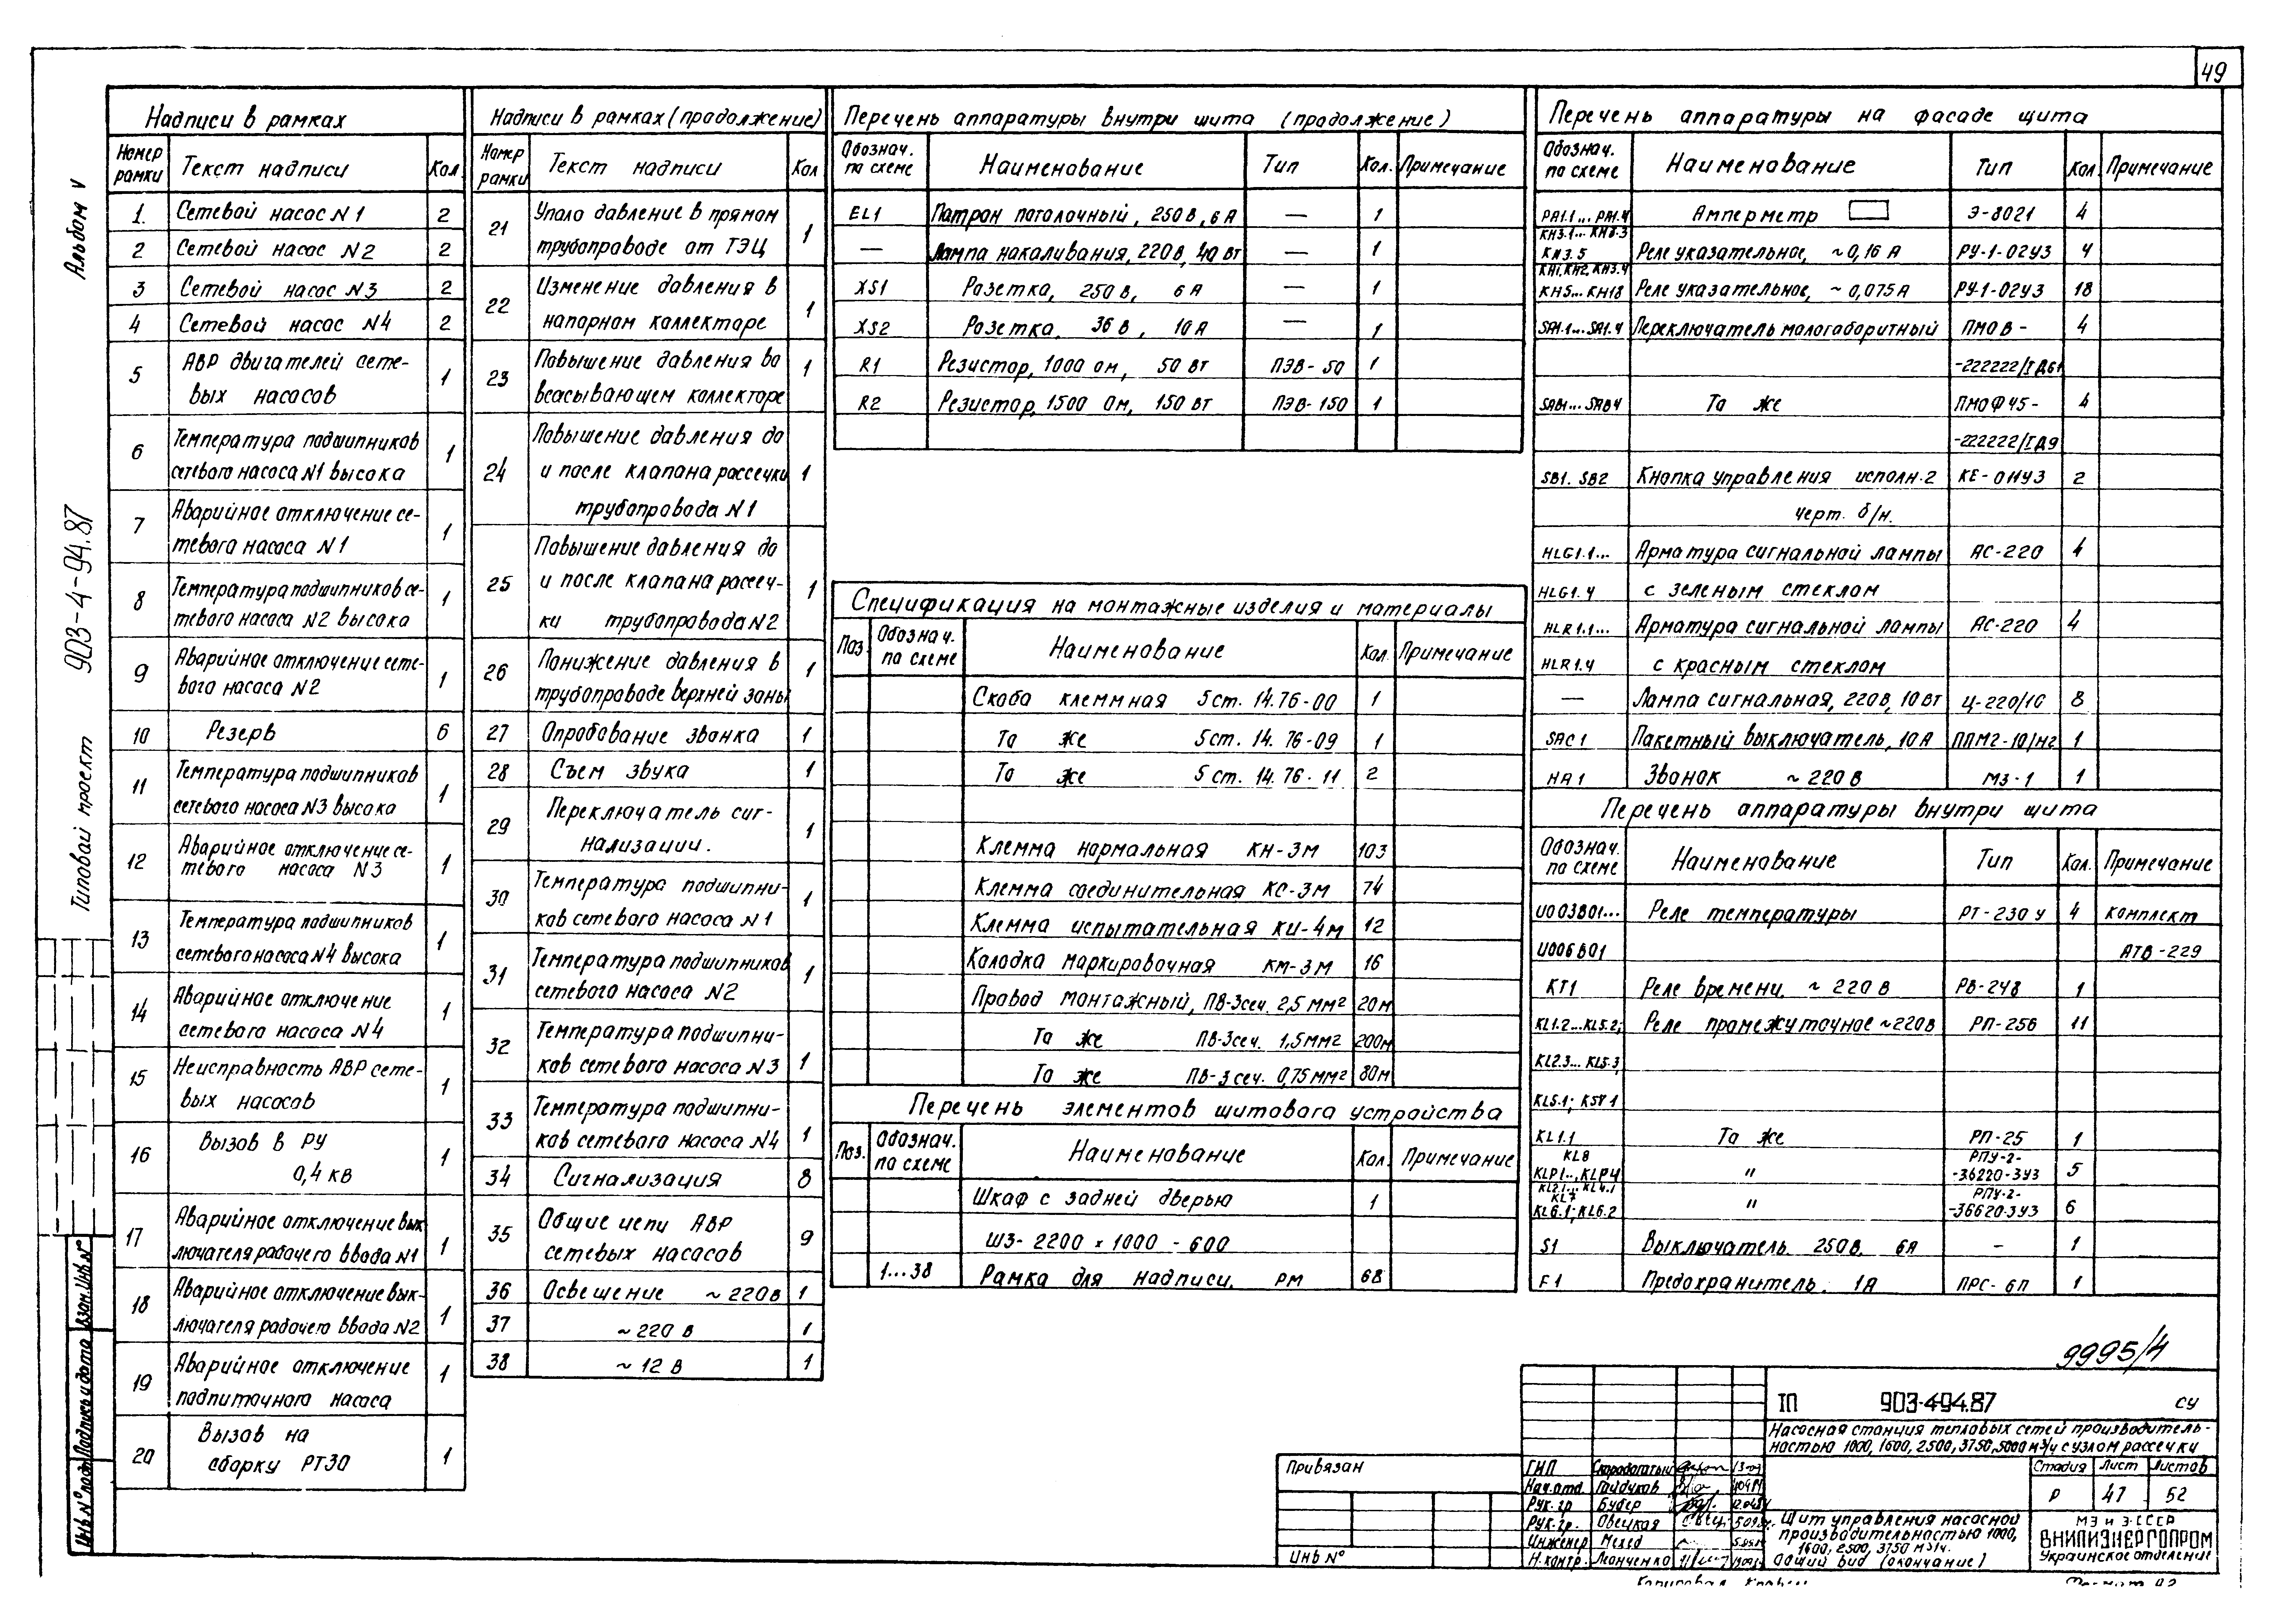 49
Альбом V
Типовой проект 903-4-94.87
Надписи в рамках
Номер рамки Текст надписи Кол.
1. Сетевой насос N1 2
2 Сетевой насос N2 2
3 Сетевой насос N3 2
4 Сетевой насос N4 2
5 АВР двигателей сете- 1
вых насосов
6 Температура подшипников 1
сетевого насоса N1 высока
7 Аварийное отключение се- 1
тевого насоса N1
8 Температура подшипников се- 1
тевого насоса N2 высока
9 Аварийное отключение сете- 1
вого насоса N2
10 Резерв 6
11 Температура подшипников 1
сетевого насоса N3 высока
12 Аварийное отключение се- 1
тевого насоса N3
13 Температура подшипников 1
сетевого насоса N4 высока
14 Аварийное отключение 1
сетевого насоса N4
15 Неисправность АВР сете- 1
вых насосов
16 Вызов в РУ 1
0,4 кв
17 Аварийное отключение вык 1
лючателя рабочего ввода N1
18 Аварийное отключение вык- 1
лючателя рабочего ввода N2
19 Аварийное отключение 1
подпиточного насоса
20 Вызов на 1
сборку РТ30
Надписи в рамках (продолжение)
Номер рамки Текст надписи Кол
21 Упало давление в прямом 1
трубопроводе от ТЭЦ
22 Изменение давления в 1
напорном коллекторе
23 Повышение давления во 1
всасывающем коллекторе
24 Повышение давления до 1
и после клапана рассечки
трубопровода N1
25 Повышение давления до 1
и после клапана рассеч-
ки трубопровода N2
26 Понижение давления в 1
трубопроводе верхней зоны
27 Опробование звонка 1
28 Съем звука 1
29 Переключатель сиг- 1
нализации.
30 Температура подшипни- 1
ков сетевого насоса N1
31 Температура подшипников 1
сетевого насоса N2
32 Температура подшипни- 1
ков сетевого насоса N3
33 Температура подшипни- 1
ков сетевого насоса N4
34 Сигнализация 8
35 Общие цепи АВР 9
сетевых насосов
36 Освещение ~220в 1
37 ~220 в 1
38 ~12 В 1
Перечень аппаратуры внутри щита (продолжение)
Обознач. по схеме Наименование Тип Кол. Примечание
EL1 Патрон потолочный, 250 В, 6 А — 1
— Лампа накаливания, 220 в, 40 вт — 1
XS1 Розетка, 250 в, 6 А — 1
XS2 Розетка, 36 в, 10 А — 1
R1 Резистор, 1000 ом, 50 вт ПЭВ-50 1
R2 Резистор, 1500 Ом, 150 вт ПЭВ-150 1
Спецификация на монтажные изделия и материалы
Поз. Обознач. по схеме Наименование Кол. Примечание
Скоба клеммная 5 ст. 14.76-00 1
То же 5 ст. 14.76-09 1
То же 5 ст. 14.76-11 2
Клемма нормальная КН-3м 103
Клемма соединительная КС-3м 74
Клемма испытательная КИ-4м 12
Колодка маркировочная КМ-3м 16
Провод монтажный, ПВ-3 сеч. 2,5 мм2 20м
То же ПВ-3 сеч. 1,5 мм2 200м
То же ПВ-3 сеч. 0,75 мм2 80м
Перечень элементов щитового устройства
Поз. Обознач. по схеме Наименование Кол. Примечание
Шкаф с задней дверью 1
ШЗ-2200 х 1000 - 600
1...38 Рамка для надписи, РМ 68
Перечень аппаратуры на фасаде щита
Обознач. по схеме Наименование Тип Кол. Примечание
РА1.1... РА1.4 Амперметр Э-8021 4
КН3.1... КН3.3
КН3.5 Реле указательное, ~0,16 А РУ-1-02У3 4
КН1, КН2, КН3.4
КН5... КН18 Реле указательное, ~0,075 А РУ-1-02У3 18
SA1.1...SA1.4 Переключатель малогабаритный ПМОВ- 4
-222222/I Д61
SAB1...SAB4 То же ПМОФ45- 4
-222222/I Д9
SB1. SB2 Кнопка управления исполн.2 КЕ-011У3 2
черт. б/н.
HLG1.1... Арматура сигнальной лампы АС-220 4
HLG1.4 с зеленым стеклом
HLR1.1... Арматура сигнальной лампы АС-220 4
HLR1.4 с красным стеклом
— Лампа сигнальная, 220 в, 10 вт Ц-220/10 8
SAC1 Пакетный выключатель, 10 А ППМ2-10/Н2 1
НА1 Звонок ~220 в МЗ-1 1
Перечень аппаратуры внутри щита
Обознач. по схеме Наименование Тип Кол. Примечание
U003B01... Реле температуры РТ-230 У 4 комплект
U006B01 АТВ-229
КТ1 Реле времени, ~220 В РВ-248 1
KL1.2...KL5.2; Реле промежуточное ~220в РП-256 11
KL2.3...KL5.3,
KL5.1;
KL1.1 То же РП-25 1
KL8 РПУ-2-
KLP1..,KLP4 " -36220-3У3 5
KL2.1... KL4.1
KL7 РПУ-2-
KL6.1;KL6.2 " -36620-3У3 6
S1 Выключатель 250 в, 6А - 1
F1 Предохранитель, 1А ПРС-6П 1
9995/4
ТП 903-4-94.87 СУ
Насосная станция тепловых сетей производитель-
ностью 1000, 1600, 2500, 3750, 5000 м3/ч с узлом рассечки
Стадия Лист Листов
Р 47 52
Щит управления насосной
производительностью 1000,
1600, 2500, 3750 м3/ч.
Общий вид (окончание)
МЭ и Э СССР
ВНИПИЭНЕРГОПРОМ
Украинское отделение
ГИП Скоробогатый
Нач. отд. Гайдуков
Рук. гр Бубер
Рук. гр. Овецкая
Инженер
Н. контр. Леонченко
Привязан
Инв N°
Взам. Инв N°
Подпись и дата
Инв N° подл
Копировал
Формат А2